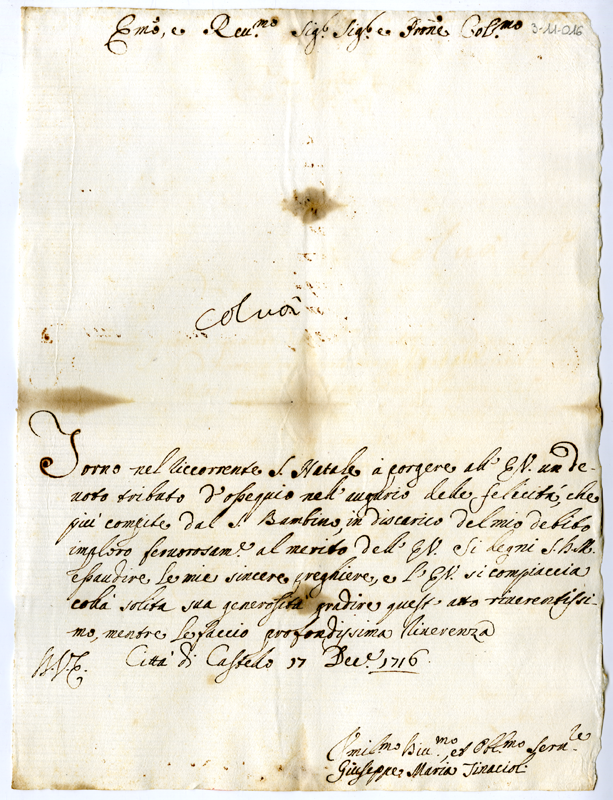 Emo, e Reu.mo Sig.r Sig.r e Prone Col.mo
3-11-016
Torno nel riccorrente S. Natale à porgere all' E.V. un de-
uoto tributo d'ossequio nell'augurio delle felicità, che
più compite dal S. Bambino, in discarico del mio debito
imploro feruorosam.e al merito dell' E.V. Si degni S.D.M.
esaudire le mie sincere preghiere, e l'E.V. si compiaccia
colla solita sua generosità gradire quest atto riuerentissi-
mo, mentre le faccio profondissima riuerenza
Città di Castello 17 Dec.e 1716
Vmil.mo Diu.mo, et Obl.mo Seru.re
Giuseppe Maria